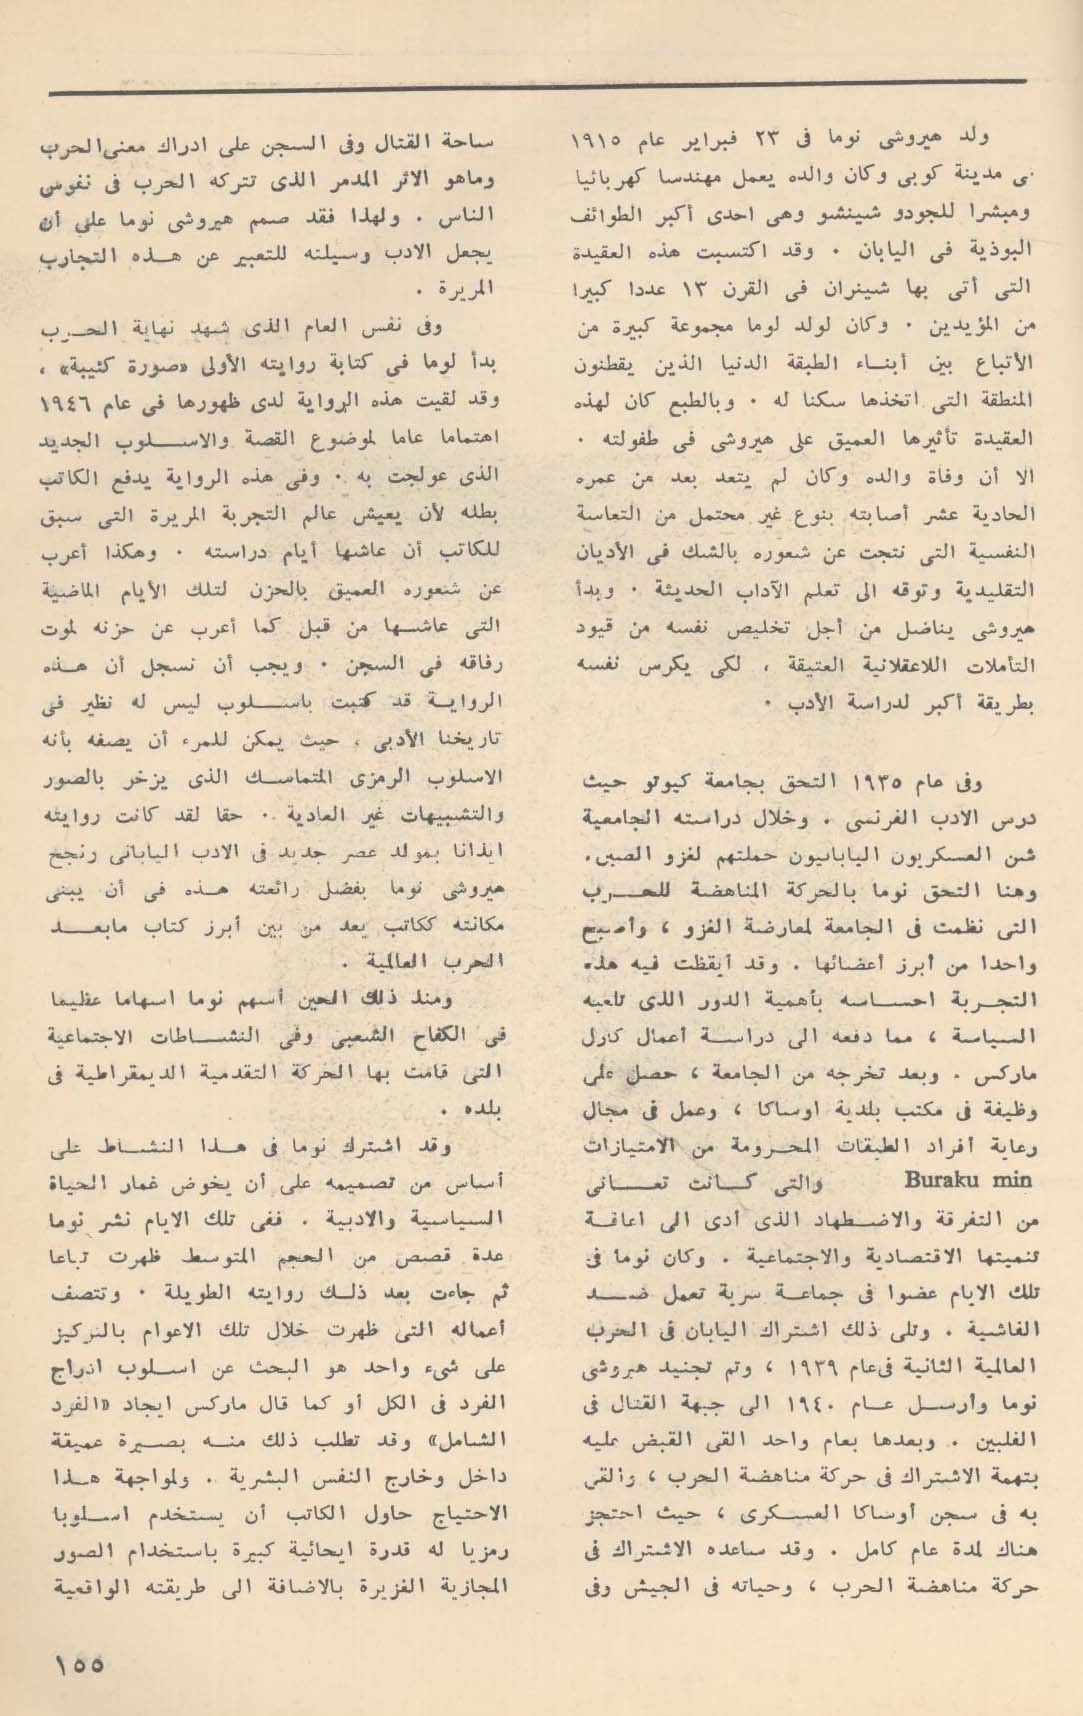 ولد هيروشى نوما فى ٢٣ فبراير عام ١٩١٥
فى مدينة كوبى وكان والده يعمل مهندسا كهربائيا
ومبشرا للجودو شينشو وهى احدى أكبر الطوائف
البوذية فى اليابان ٠ وقد اكتسبت هذه العقيدة
التى أتى بها شينران فى القرن ١٣ عددا كبيرا
من المؤيدين ٠ وكان لولد لوما مجموعة كبيرة من
الأتباع بين أبناء الطبقة الدنيا الذين يقطنون
المنطقة التى اتخذها سكنا له ٠ وبالطبع كان لهذه
العقيدة تأثيرها العميق على هيروشى فى طفولته ٠
الا أن وفاة والده وكان لم يتعد بعد من عمره
الحادية عشر أصابته بنوع غير محتمل من التعاسة
النفسية التى نتجت عن شعوره بالشك فى الأديان
التقليدية وتوقه الى تعلم الآداب الحديثة ٠ وبدأ
هيروشى يناضل من أجل تخليص نفسه من قيود
التأملات اللاعقلانية العتيقة ، لكى يكرس نفسه
بطريقة أكبر لدراسة الأدب ٠
وفى عام ١٩٣٥ التحق بجامعة كيوتو حيث
درس الادب الفرنسى . وخلال دراسته الجامعية
شن العسكريون اليابانيون حملتهم لغزو الصين.
وهنا التحق نوما بالحركة المناهضة للحرب
التى نظمت فى الجامعة لمعارضة الغزو ، وأصبح
واحدا من أبرز أعضائها . وقد أيقظت فيه هذه
التجربة احساسه بأهمية الدور الذى تلعبه
السياسة ، مما دفعه الى دراسة أعمال كارل
ماركس . وبعد تخرجه من الجامعة ، حصل على
وظيفة فى مكتب بلدية اوساكا ، وعمل فى مجال
رعاية أفراد الطبقات المحرومة من الامتيازات
Buraku min والتى كانت تعانى
من التفرقة والاضطهاد الذى أدى الى اعاقة
تنميتها الاقتصادية والاجتماعية . وكان نوما فى
تلك الايام عضوا فى جماعة سرية تعمل ضد
الفاشية . وتلى ذلك اشتراك اليابان فى الحرب
العالمية الثانية فى عام ١٩٣٩ ، وتم تجنيد هيروشى
نوما وأرسل عام ١٩٤٠ الى جبهة القتال فى
الفلبين . وبعدها بعام واحد القى القبض عليه
بتهمة الاشتراك فى حركة مناهضة الحرب ، والقى
به فى سجن أوساكا العسكرى ، حيث احتجز
هناك لمدة عام كامل . وقد ساعده الاشتراك فى
حركة مناهضة الحرب ، وحياته فى الجيش وفى
ساحة القتال وفى السجن على ادراك معنى الحرب
وماهو الاثر المدمر الذى تتركه الحرب فى نفوس
الناس . ولهذا فقد صمم هيروشى نوما على أن
يجعل الادب وسيلته للتعبير عن هذه التجارب
المريرة .
وفى نفس العام الذى شهد نهاية الحرب
بدأ لوما فى كتابة روايته الأولى «صورة كئيبة» ،
وقد لقيت هذه الرواية لدى ظهورها فى عام ١٩٤٦
اهتماما عاما لموضوع القصة والاسلوب الجديد
الذى عولجت به ٠ وفى هذه الرواية يدفع الكاتب
بطله لأن يعيش عالم التجربة المريرة التى سبق
للكاتب أن عاشها أيام دراسته ٠ وهكذا أعرب
عن شعوره العميق بالحزن لتلك الأيام الماضية
التى عاشها من قبل كما أعرب عن حزنه لموت
رفاقه فى السجن ٠ ويجب أن نسجل أن هذه
الرواية قد كتبت باسلوب ليس له نظير فى
تاريخنا الأدبى ، حيث يمكن للمرء أن يصفه بأنه
الاسلوب الرمزى المتماسك الذى يزخر بالصور
والتشبيهات غير العادية ٠ حقا لقد كانت روايته
ايذانا بمولد عصر جديد فى الادب اليابانى ونجح
هيروشى نوما بفضل رائعته هذه فى أن يبنى
مكانته ككاتب يعد من بين أبرز كتاب مابعد
الحرب العالمية .
ومنذ ذلك الحين أسهم نوما اسهاما عظيما
فى الكفاح الشعبى وفى النشاطات الاجتماعية
التى قامت بها الحركة التقدمية الديمقراطية فى
بلده .
وقد اشترك نوما فى هذا النشاط على
أساس من تصميمه على أن يخوض غمار الحياة
السياسية والادبية . ففى تلك الايام نشر نوما
عدة قصص من الحجم المتوسط ظهرت تباعا
ثم جاءت بعد ذلك روايته الطويلة ٠ وتتصف
أعماله التى ظهرت خلال تلك الاعوام بالتركيز
على شىء واحد هو البحث عن اسلوب ادراج
الفرد فى الكل أو كما قال ماركس ايجاد «الفرد
الشامل» وقد تطلب ذلك منه بصيرة عميقة
داخل وخارج النفس البشرية . ولمواجهة هذا
الاحتياج حاول الكاتب أن يستخدم اسلوبا
رمزيا له قدرة ايحائية كبيرة باستخدام الصور
المجازية الغزيرة بالاضافة الى طريقته الواقعية
١٥٥